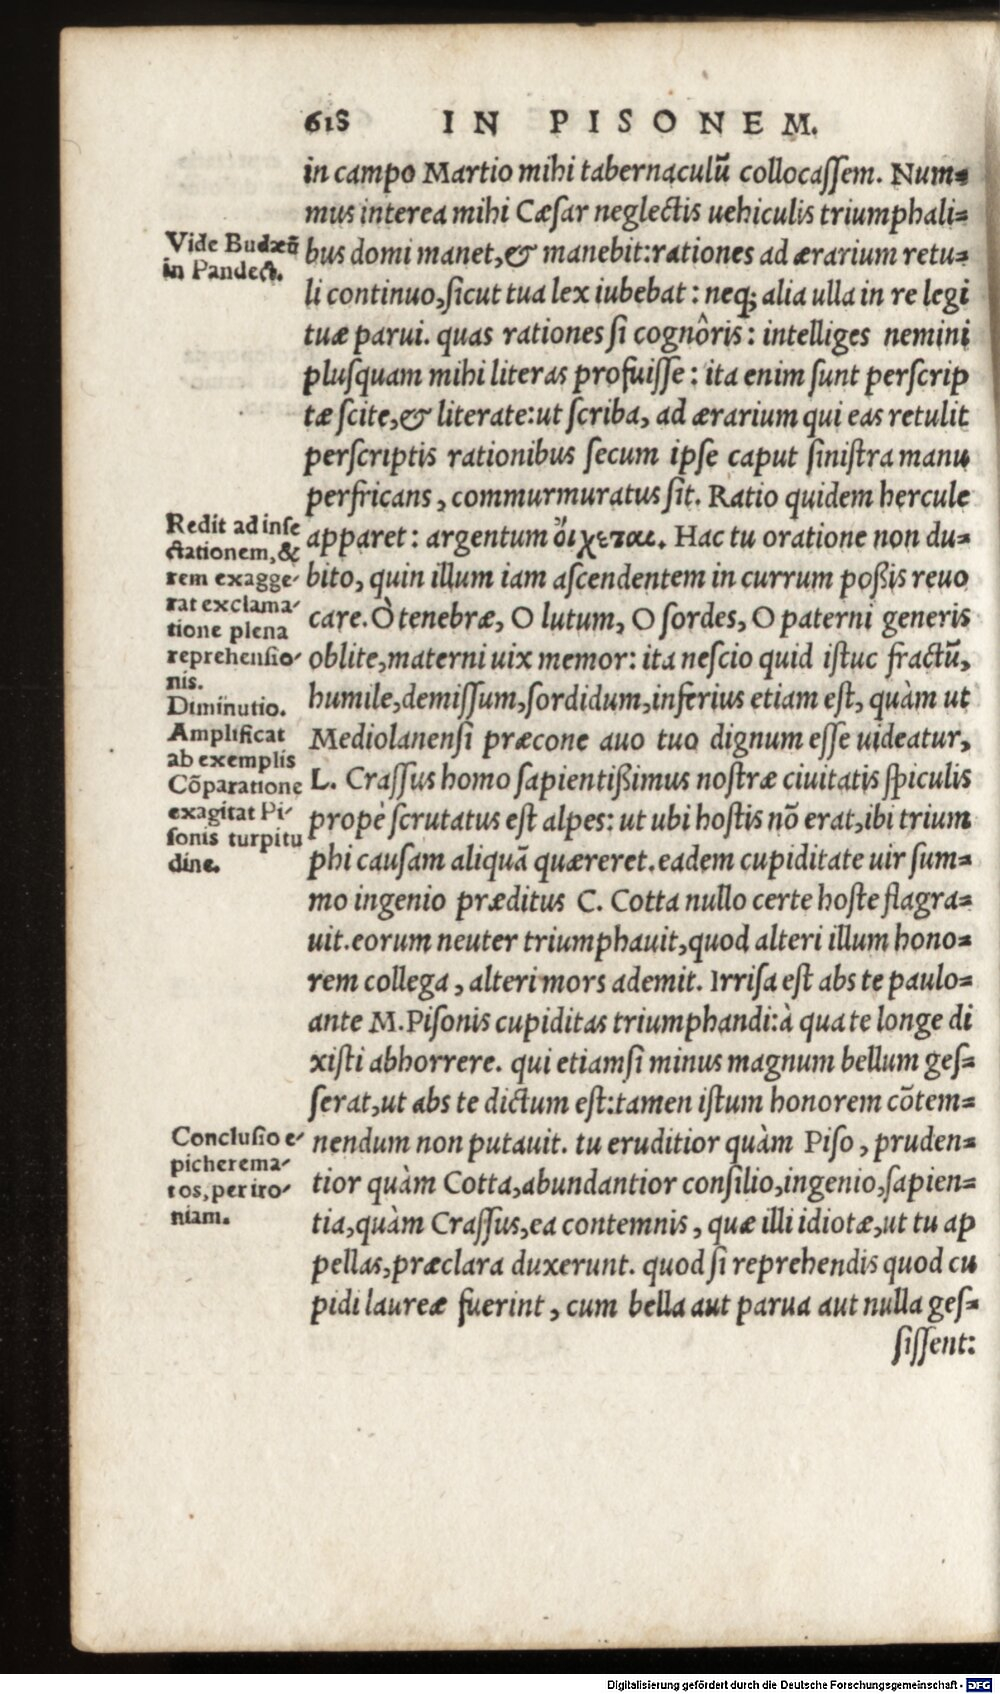 618 IN PISONEM.
in campo Martio mihi tabernaculũ collocaſſem. Num=
mus interea mihi Cæſar neglectis uehiculis triumphali=
bus domi manet,& manebit:rationes ad ærarium retu=
li continuo,ſicut tua lex iubebat : neq; alia ulla in re legi
tuæ parui. quas rationes ſi cognôris : intelliges nemini
pluſquam mihi literas profuiſſe : ita enim ſunt perſcrip
tæ ſcite,& literate:ut ſcriba, ad ærarium qui eas retulit
perſcriptis rationibus ſecum ipſe caput ſiniſtra manu
perfricans, commurmuratus ſit. Ratio quidem hercule
apparet : argentum ὄιχεται. Hac tu oratione non du=
bito, quin illum iam aſcendentem in currum poßis reuo
care. Ò tenebræ, O lutum, O ſordes, O paterni generis
oblite,materni uix memor: ita neſcio quid iſtuc fractũ,
humile,demiſſum,ſordidum,inferius etiam eſt, quàm ut
Mediolanenſi præcone auo tuo dignum eſſe uideatur,
L. Craſſus homo ſapientißimus noſtræ ciuitatis ſpiculis
propè ſcrutatus eſt alpes: ut ubi hoſtis nõ erat,ibi trium
phi cauſam aliquã quæreret.eadem cupiditate uir ſum=
mo ingenio præditus C. Cotta nullo certe hoſte flagra=
uit.eorum neuter triumphauit,quod alteri illum hono=
rem collega, alteri mors ademit. Irriſa eſt abs te paulo=
ante M.Piſonis cupiditas triumphandi:à qua te longe di
xiſti abhorrere. qui etiamſi minus magnum bellum geſ=
ſerat,ut abs te dictum eſt:tamen iſtum honorem cõtem=
nendum non putauit. tu eruditior quàm Piſo, pruden=
tior quàm Cotta,abundantior conſilio,ingenio,ſapien=
tia,quàm Craſſus,ea contemnis, quæ illi idiotæ,ut tu ap
pellas,præclara duxerunt. quod ſi reprehendis quod cu
pidi laureæ fuerint, cum bella aut parua aut nulla geſ=
ſiſſent:
Vide Budæũ
in Pandect.
Redit ad inſe
ctationem,&
rem exagge-
rat exclama-
tione plena
reprehenſio-
nis.
Diminutio.
Amplificat
ab exemplis
Cõparatione
exagitat Pi-
ſonis turpitu
dine.
Concluſio e-
picherema-
tos,per iro-
niam.
Digitalisierung gefördert durch die Deutsche Forschungsgemeinschaft - DFG